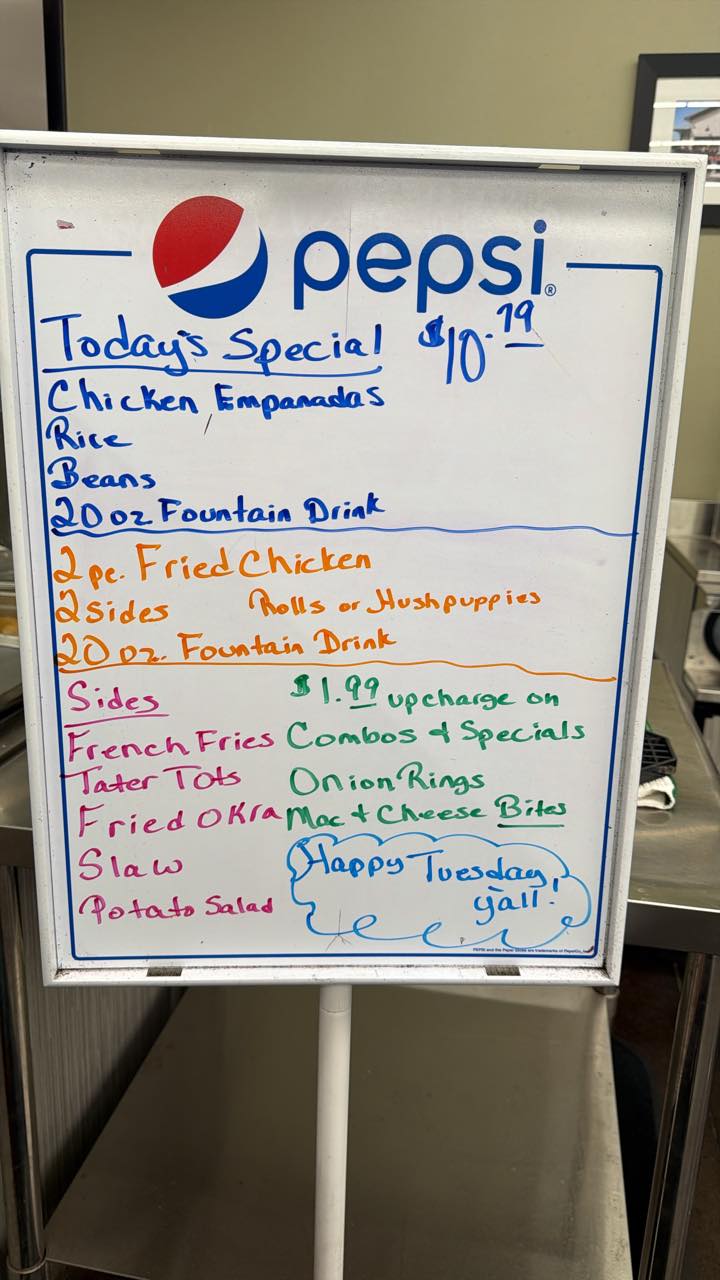 pepsi®
Today's Special $10.79
Chicken Empanadas
Rice
Beans
20 oz Fountain Drink
2 pc. Fried Chicken
2 sides Rolls or Hushpuppies
20 oz. Fountain Drink
Sides
French Fries
Tater Tots
Fried OKra
Slaw
Potato Salad
$1.99 upcharge on
Combos & Specials
Onion Rings
Mac & Cheese Bites
Happy Tuesday
y'all!